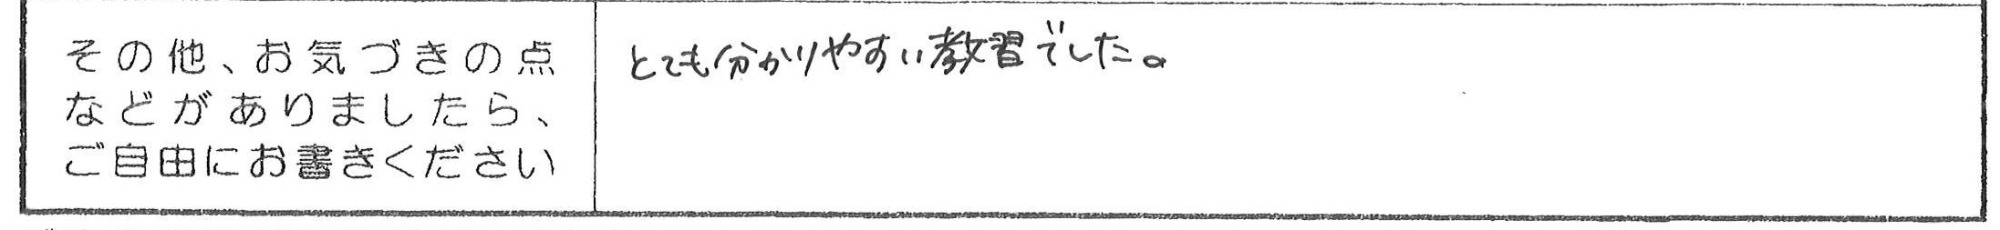 その他、お気づきの点
などがありましたら、
ご自由にお書きください
とても分かりやすい教習でした。